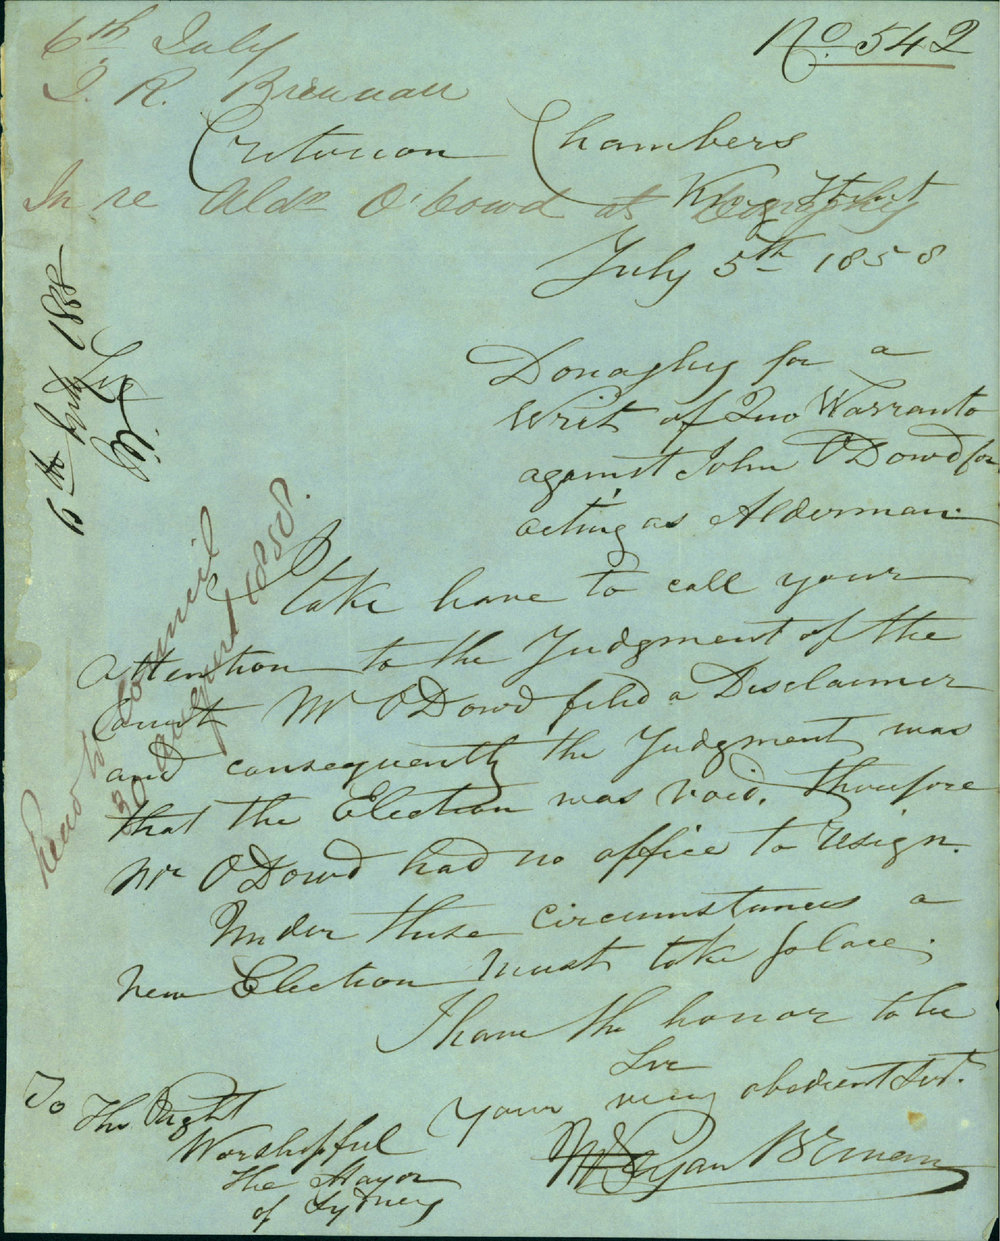 No. 542
6th July
J. R. Brennan
Criterion Chambers
King Street
In re Aldn O'Dowd at
July 5th 1858
6th July 1858
Donaghy for a
Writ of Quo Warranto
against John O'Dowd for
acting as Alderman.
I take leave to call your
attention to the Judgment of the
Court Mr O'Dowd filed a Disclaimer
and consequently the Judgment was
that the Election was void. Therefore
Mr O'Dowd had no office to resign.
Under these circumstances a
new Election must take place.
I have the honor to be
Sir
Your very obedient Svt.
Ryan Brenan
To The Right
Worshipful
The Mayor
of Sydney
Read to Council
30 August 1858.